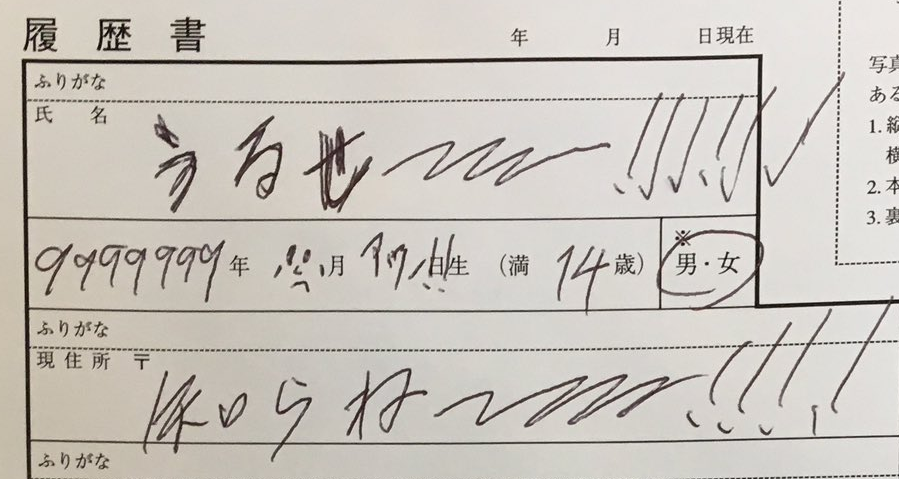 履歴書 年 月 日現在
ふりがな
氏 名 うるせ〜〜!!!!!!
9999999年 月 日生 (満 14歳) ※ 男・女
ふりがな
現住所 〒 〜〜!!!!
ふりがな
写真
ある
1. 縦
横
2. 本
3. 裏